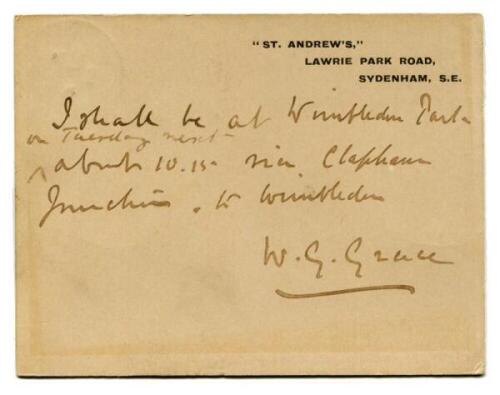 "ST. ANDREW'S,"
LAWRIE PARK ROAD,
SYDENHAM, S.E.
I shall be at Wimbledon Park
on Tuesday next
about 10.15 via Clapham
Junction, to Wimbledon
W. G. Grace